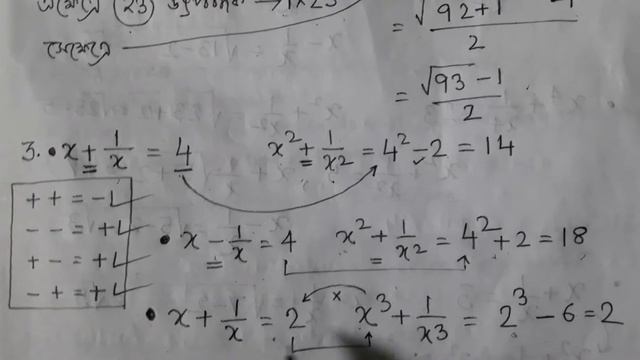 (23)
= √(92+1) - 1 / 2
= (√93 - 1) / 2
3. • x + 1/x = 4 x² + 1/x² = 4² - 2 = 14
+ + = -L
- - = +L
+ - = +L
- + = +L
• x - 1/x = 4 x² + 1/x² = 4² + 2 = 18
• x + 1/x = 2 x x³ + 1/x3 = 2³ - 6 = 2